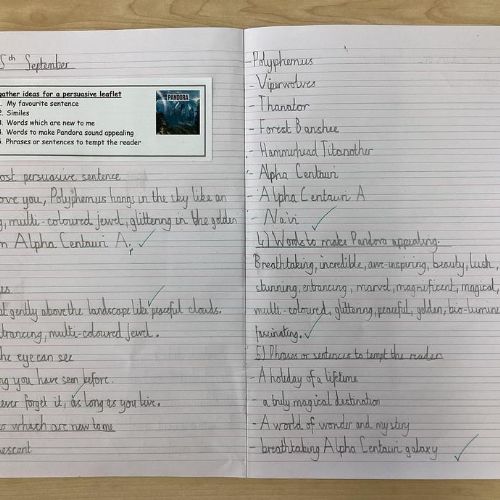 5th September
gather ideas for a persuasive leaflet
1. My favourite sentence
2. Similes
3. Words which are new to me
4. Words to make Pandora sound appealing
5. Phrases or sentences to tempt the reader
PANDORA
most persuasive sentence
ove you, Polyphemus hangs in the sky like an
g, multi-coloured jewel, glittering in the golden
m Alpha Centauri A.
es
at gently above the landscape like peaceful clouds.
ntrancing, multi-coloured jewel.
the eye can see
ng you have seen before.
ever forget it, as long as you live.
s which are new to me
nescent
- Polyphemus
- Viperwolves
- Thanator
- Forest Banshee
- Hammerhead Titanother
- Alpha Centauri
- Alpha Centauri A
- Na'vi
4) Words to make Pandora appealing.
Breathtaking, incredible, awe-inspiring, beauty, lush,
stunning, entrancing, marvel, magnificent, magical,
multi-coloured, glittering, peaceful, golden, bio-lumine
fascinating.
5) Phrases or sentences to tempt the reader
- A holiday of a lifetime
- a truly magical destination
- A world of wonder and mystery
- breathtaking Alpha Centauri galaxy